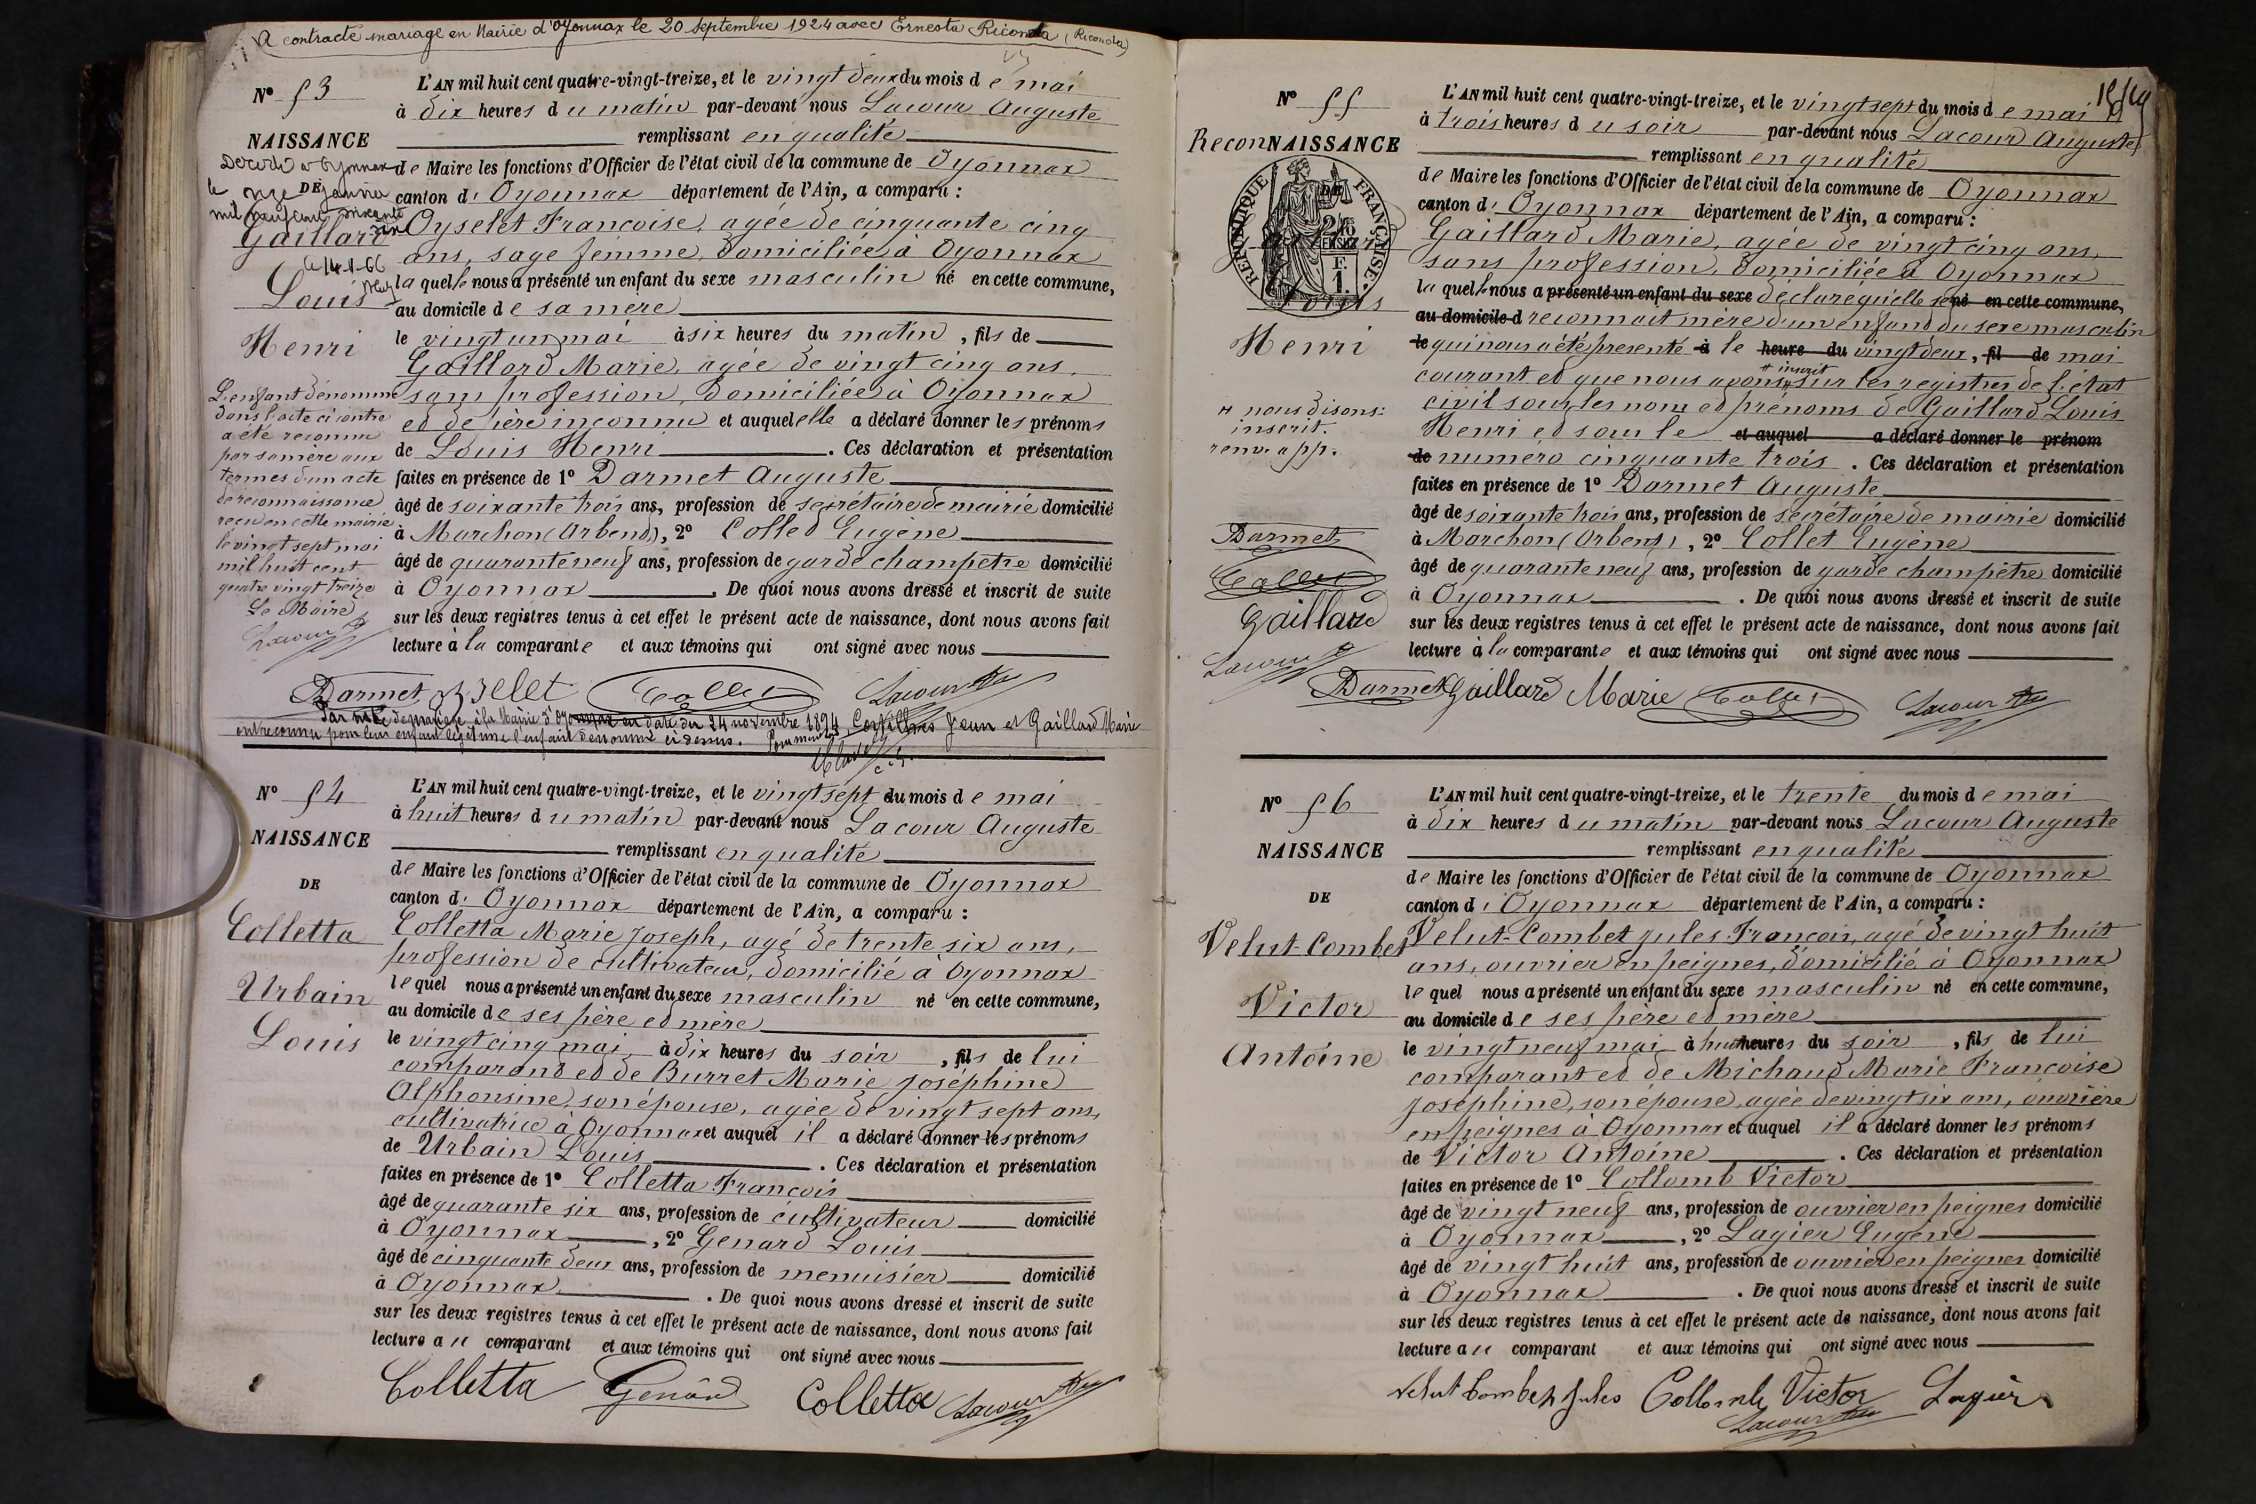 A contracté mariage en Mairie d'Oyonnax le 20 Septembre 1924 avec Ernesta Riconda (Riconda)
N° 53
NAISSANCE
Décédé à Oyonnax
le onze janvier
DE
mil neuf cent soixante
six
Gaillard
le 14-1-66
Louis
Henri
L'enfant dénommé
dans l'acte ci contre
a été reconnu
par sa mère aux
termes d'un acte
de reconnaissance
reçu en cette mairie
le vingt sept mai
mil huit cent
quatre vingt treize
Le Maire
Lacour
L'AN mil huit cent quatre-vingt-treize, et le vingt deux du mois de mai
à dix heures du matin par-devant nous Lacour Auguste
remplissant en qualité
de Maire les fonctions d'Officier de l'état civil de la commune de Oyonnax
canton d'Oyonnax département de l'Ain, a comparu :
Oyselet Françoise, agée de cinquante cinq
ans, sage femme, domiciliée à Oyonnax
laquelle nous a présenté un enfant du sexe masculin né en cette commune,
au domicile de sa mère
le vingt un mai à six heures du matin, fils de
Gaillard Marie, agée de vingt cinq ans,
sans profession, domiciliée à Oyonnax
et de père inconnu et auquel elle a déclaré donner les prénoms
de Louis Henri. Ces déclaration et présentation
faites en présence de 1° Darmet Auguste
âgé de soixante trois ans, profession de secrétaire de mairie domicilié
à Marchon (Arbent), 2° Collet Eugène
âgé de quarante neuf ans, profession de garde champêtre domicilié
à Oyonnax. De quoi nous avons dressé et inscrit de suite
sur les deux registres tenus à cet effet le présent acte de naissance, dont nous avons fait
lecture à la comparante et aux témoins qui ont signé avec nous
Darmet Oyselet Collet Lacour
Par acte de mariage à la Mairie d'Oyonnax en date du 24 novembre 1894, Jean et Gaillard Marie
ont reconnu pour leur enfant légitime l'enfant dénommé ci dessus.
N° 54
NAISSANCE
DE
Colletta
Urbain
Louis
L'AN mil huit cent quatre-vingt-treize, et le vingt sept du mois de mai
à huit heures du matin par-devant nous Lacour Auguste
remplissant en qualité
de Maire les fonctions d'Officier de l'état civil de la commune de Oyonnax
canton d'Oyonnax département de l'Ain, a comparu :
Colletta Marie Joseph, agé de trente six ans,
profession de cultivateur, domicilié à Oyonnax
lequel nous a présenté un enfant du sexe masculin né en cette commune,
au domicile de ses père et mère
le vingt cinq mai à dix heures du soir, fils de lui
comparant et de Burret Marie Joséphine
Alphonsine, son épouse, agée de vingt sept ans,
cultivatrice à Oyonnax et auquel il a déclaré donner les prénoms
de Urbain Louis. Ces déclaration et présentation
faites en présence de 1° Colletta François
âgé de quarante six ans, profession de cultivateur domicilié
à Oyonnax, 2° Genard Louis
âgé de cinquante deux ans, profession de menuisier domicilié
à Oyonnax. De quoi nous avons dressé et inscrit de suite
sur les deux registres tenus à cet effet le présent acte de naissance, dont nous avons fait
lecture au comparant et aux témoins qui ont signé avec nous
Colletta Genard Colletta Lacour
N° 55
ReconNAISSANCE
RÉPUBLIQUE FRANÇAISE
DE
Louis
Henri
# nous disons:
inscrit.
renv. app.
Darmet
Collet
Gaillard
Lacour
L'AN mil huit cent quatre-vingt-treize, et le vingt sept du mois de mai
à trois heures du soir par-devant nous Lacour Auguste
remplissant en qualité
de Maire les fonctions d'Officier de l'état civil de la commune de Oyonnax
canton d'Oyonnax département de l'Ain, a comparu :
Gaillard Marie, agée de vingt cinq ans,
sans profession, domiciliée à Oyonnax
laquelle nous a présenté un enfant du sexe déclaré qu'elle se né en cette commune,
au domicile d reconnait mère d'un enfant du sexe masculin
le qui nous a été présenté à le heure du vingt deux, fil de mai
courant et que nous avons # inscrit sur les registres de l'état
civil sous les noms et prénoms de Gaillard Louis
Henri et sous le et auquel a déclaré donner le prénom
de numéro cinquante trois. Ces déclaration et présentation
faites en présence de 1° Darmet Auguste
âgé de soixante trois ans, profession de secrétaire de mairie domicilié
à Marchon (Arbent), 2° Collet Eugène
âgé de quarante neuf ans, profession de garde champêtre domicilié
à Oyonnax. De quoi nous avons dressé et inscrit de suite
sur les deux registres tenus à cet effet le présent acte de naissance, dont nous avons fait
lecture à la comparante et aux témoins qui ont signé avec nous
Darmet Gaillard Marie Collet Lacour
N° 56
NAISSANCE
DE
Velut-Combet
Victor
Antoine
L'AN mil huit cent quatre-vingt-treize, et le trente du mois de mai
à dix heures du matin par-devant nous Lacour Auguste
remplissant en qualité
de Maire les fonctions d'Officier de l'état civil de la commune de Oyonnax
canton d'Oyonnax département de l'Ain, a comparu :
Velut-Combet Jules François, agé de vingt huit
ans, ouvrier en peignes, domicilié à Oyonnax
lequel nous a présenté un enfant du sexe masculin né en cette commune,
au domicile de ses père et mère
le vingt neuf mai à huit heures du soir, fils de lui
comparant et de Michaud Marie Françoise
Joséphine, son épouse, agée de vingt six ans, ouvrière
en peignes à Oyonnax et auquel il a déclaré donner les prénoms
de Victor Antoine. Ces déclaration et présentation
faites en présence de 1° Collomb Victor
âgé de vingt neuf ans, profession de ouvrier en peignes domicilié
à Oyonnax, 2° Lagier Eugène
âgé de vingt huit ans, profession de ouvrier en peignes domicilié
à Oyonnax. De quoi nous avons dressé et inscrit de suite
sur les deux registres tenus à cet effet le présent acte de naissance, dont nous avons fait
lecture au comparant et aux témoins qui ont signé avec nous
Velut Combet Jules Collomb Victor Lagier
Lacour